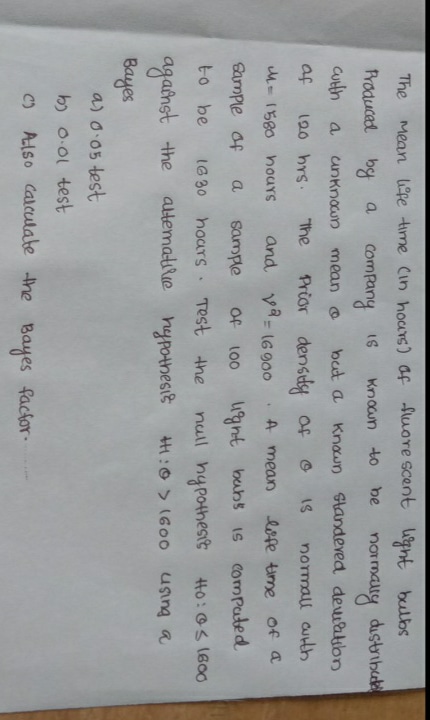 The mean life time (in hours) of fluorescent light bulbs
Produced by a company is known to be normally distributed
with a unknown mean θ but a known standered deviation
of 120 hrs. The Prior density of θ is normall with
μ = 1580 hours and ν² = 16900. A mean life time of a
sample of a sample of 100 light bulbs is computed
to be 1630 hours. Test the null hypothesis H0: θ ≤ 1600
against the alternative hypothesis H1: θ > 1600 using a
Bayes
a) 0.05 test
b) 0.01 test
c) Also calculate the Bayes factor.......